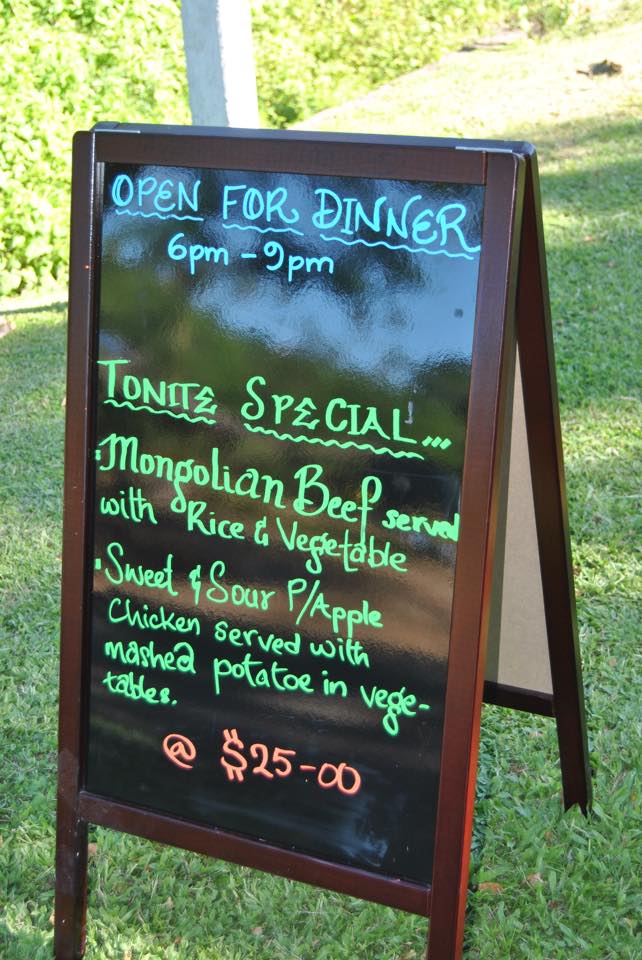 OPEN FOR DINNER
6pm - 9pm
TONITE SPECIAL...
• Mongolian Beef served
with Rice & Vegetable
• Sweet & Sour P/Apple
Chicken served with
mashed potatoe in vege-
tables.
@ $25-00